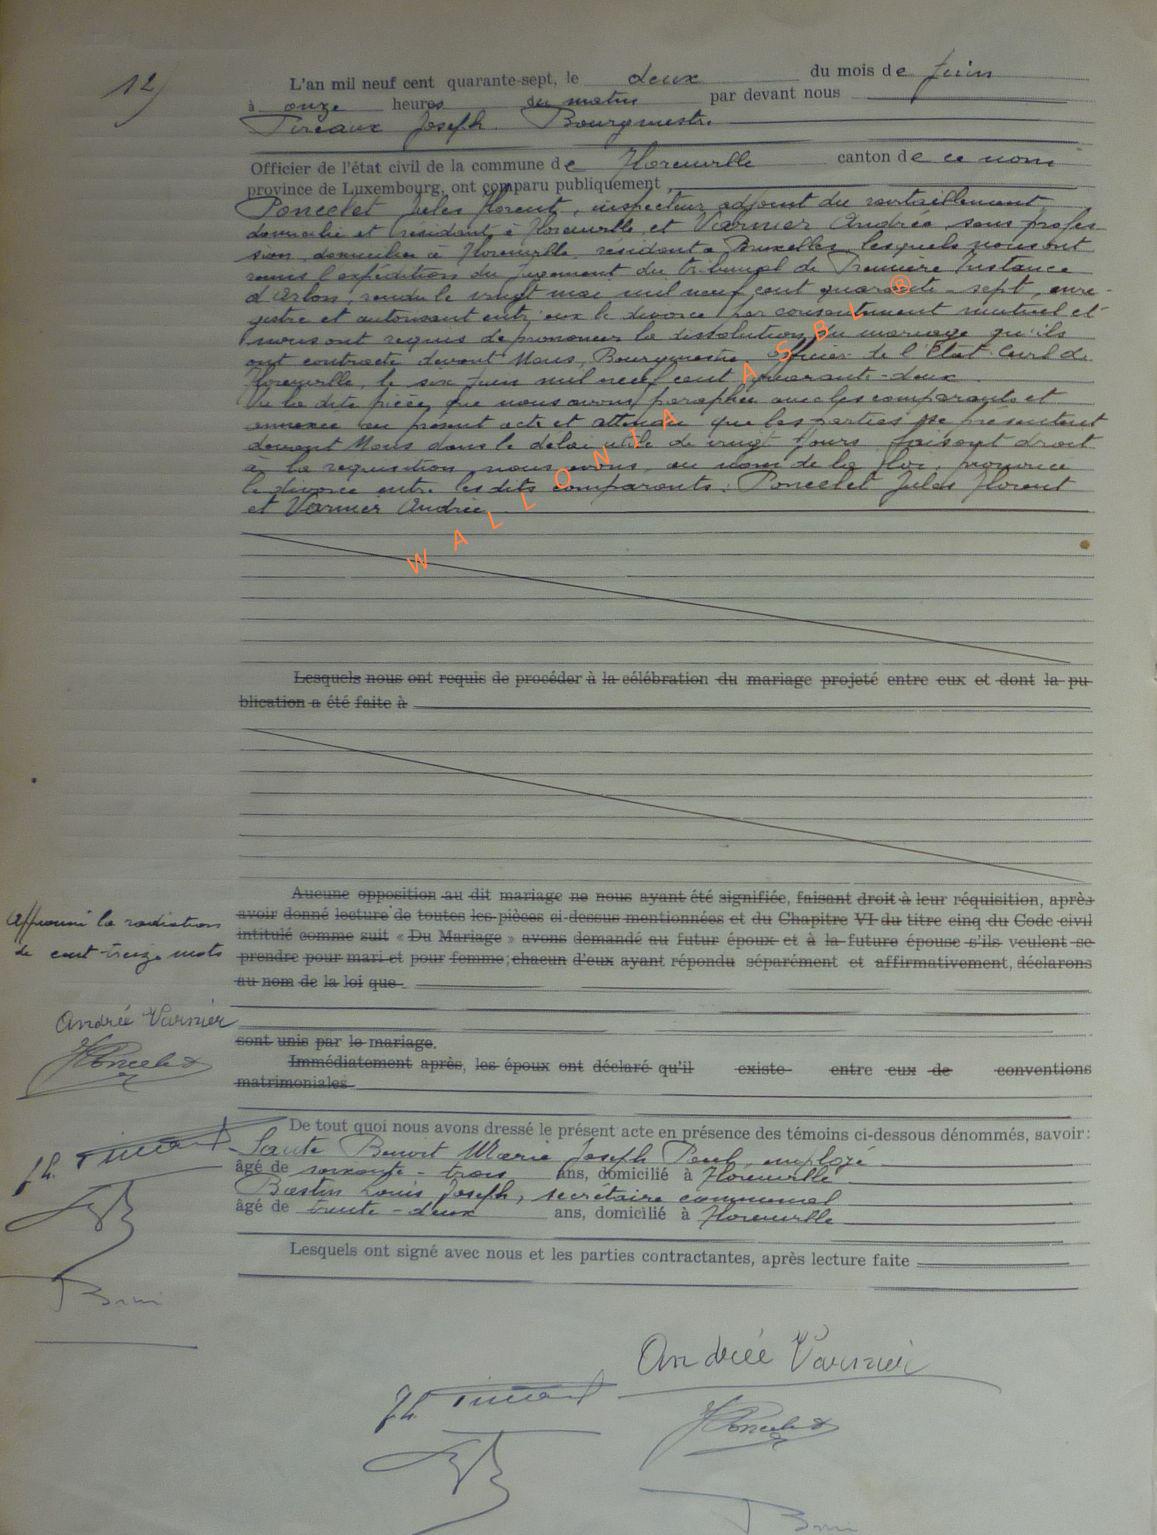 12)
L'an mil neuf cent quarante-sept, le deux du mois de Juin
à onze heures du matin par devant nous
Pireaux Joseph. Bourgmestre
Officier de l'état civil de la commune de Florenville canton de ce nom
province de Luxembourg, ont comparu publiquement,
Poncelet Jules Florent, inspecteur adjoint du ravitaillement
domicilié et résidant à Florenville et Varnier Andrée, sans profes-
sion, domiciliée à Florenville résidant à Bruxelles, lesquels nous ont
remis l'expédition du jugement du tribunal de Première Instance
d'Arlon, rendu le vingt mai mil neuf cent quarante-sept, enre-
gistré et autorisant entr'eux le divorce par consentement mutuel et
nous ont requis de prononcer la dissolution du mariage qu'ils
ont contracté devant Nous, Bourgmestre, Officier de l'Etat Civil de
Florenville, le six Juin mil neuf cent quarante-deux.
Vu la dite pièce, que nous avons paraphée avec les comparants et
annexée au présent acte et attendu que les parties se présentent
devant Nous dans le délai utile de vingt jours, faisant droit
à la requisition, nous avons, au nom de la Loi, prononcé
le divorce entre les dits comparants: Poncelet Jules Florent
et Varnier Andrée
WALLONIA ASBL ®
Lesquels nous ont requis de procéder à la célébration du mariage projeté entre eux et dont la pu
blication a été faite à
Aucune opposition au dit mariage ne nous ayant été signifiée, faisant droit à leur réquisition, après
avoir donné lecture de toutes les pièces ci-dessus mentionnées et du Chapitre VI du titre cinq du Code civil
intitulé comme suit « Du Mariage » avons demandé au futur époux et à la future épouse s'ils veulent se
prendre pour mari et pour femme; chacun d'eux ayant répondu séparément et affirmativement, déclarons
au nom de la loi que
Approuvé la radiation
de cent-treize mots
Andrée Varnier
JPoncelet
sont unis par le mariage.
Immédiatement après, les époux ont déclaré qu'il existe entre eux de conventions
matrimoniales
De tout quoi nous avons dressé le présent acte en présence des témoins ci-dessous dénommés, savoir:
Benoit Marie Joseph Paul, employé
âgé de soixante-trois ans, domicilié à Florenville
Louis Joseph, secrétaire communal
âgé de trente-deux ans, domicilié à Florenville
Lesquels ont signé avec nous et les parties contractantes, après lecture faite
Andrée Varnier
JPoncelet